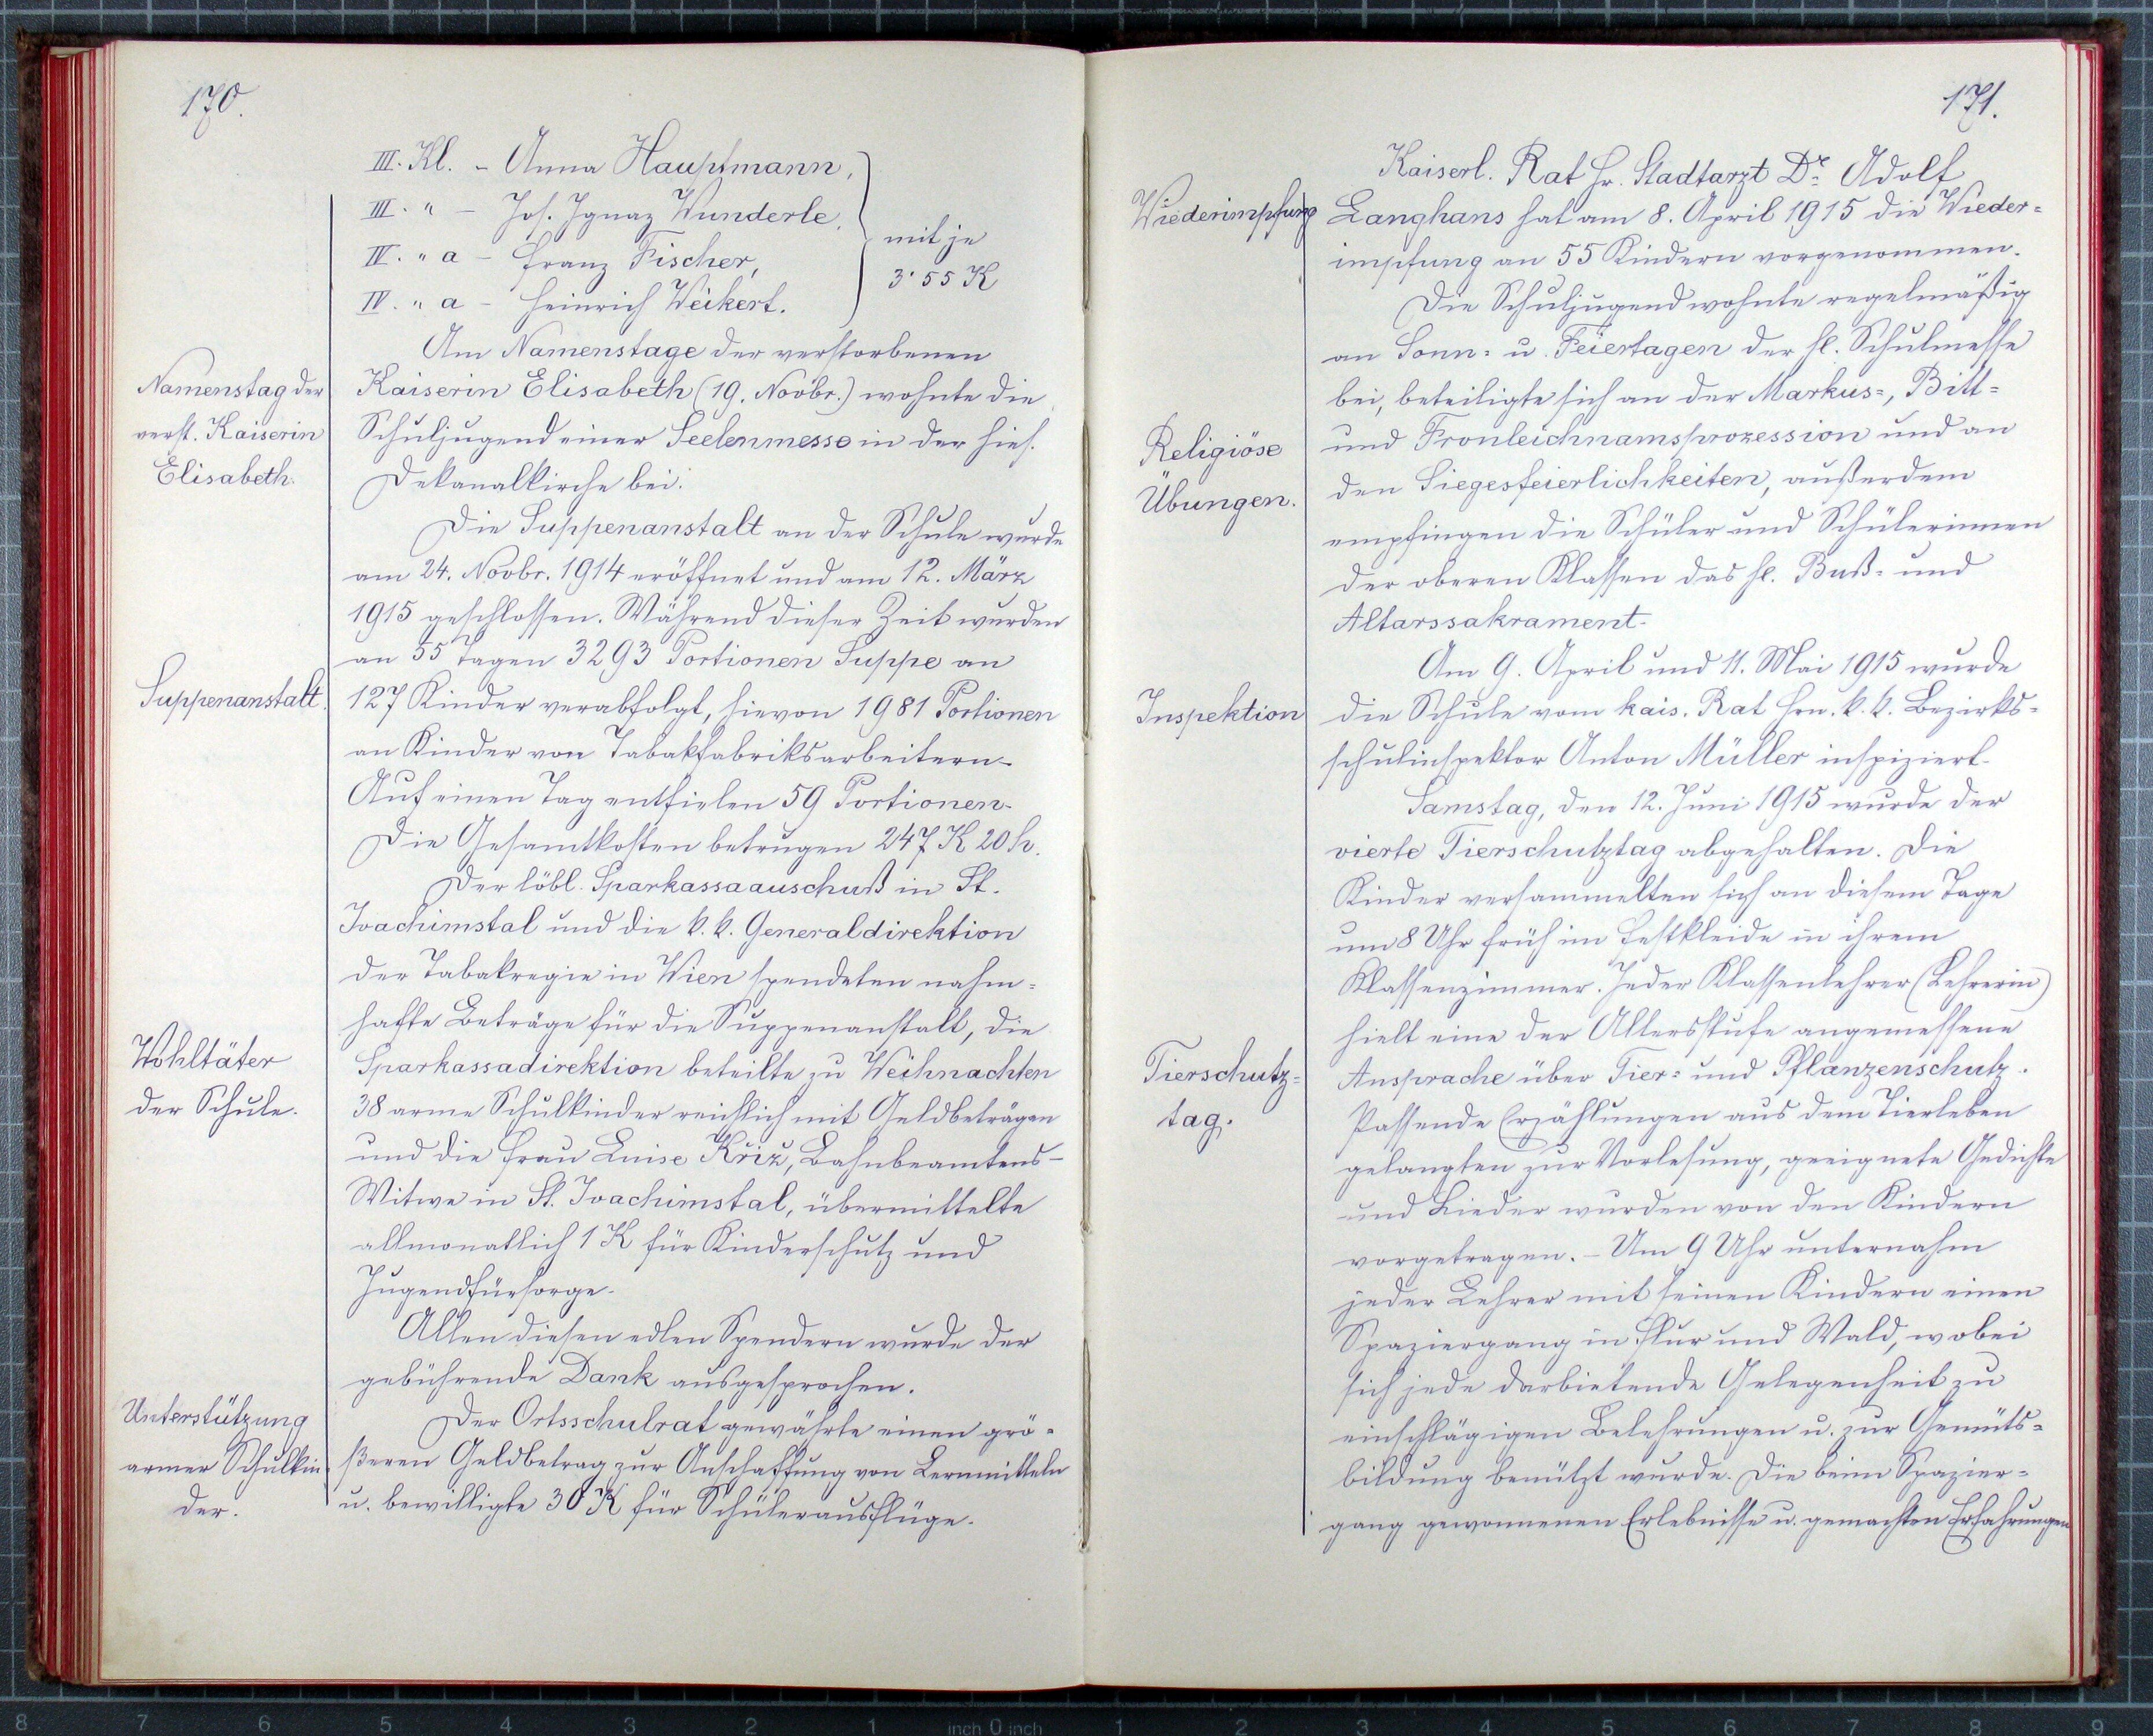 170.
III. Kl. - Anna Hauptmann,
III. " - Jos. Ignaz Wunderle,
IV. " a - Franz Fischer,
IV. " a - Heinrich Weikert.
mit je
3·55 K
Am Namenstage der verstorbenen
Namenstag der
verst. Kaiserin
Elisabeth.
Kaiserin Elisabeth (19. Novbr.) wohnte die
Schuljugend einer Seelenmesse in der hies.
Dekanalkirche bei.
Die Suppenanstalt an der Schule wurde
am 24. Novbr. 1914 eröffnet und am 12. März
1915 geschlossen. Während dieser Zeit wurden
an 55 Tagen 3293 Portionen Suppe an
Suppenanstalt.
127 Kinder verabfolgt, hievon 1981 Portionen
an Kinder von Tabakfabriksarbeitern.
Auf einen Tag entfielen 59 Portionen.
Die Gesamtkosten betrugen 247 K 20 h.
Der löbl. Sparkassaauschuß in St.
Joachimstal und die k. k. Generaldirektion
der Tabakregie in Wien spendeten nahm-
hafte Beträge für die Suppenanstalt, die
Wohltäter
der Schule.
Sparkassadirektion beteilte zu Weihnachten
38 arme Schulkinder reichlich mit Geldbeträgen
und die Frau Luise Kříž, Bahnbeamtens-
Witwe in St. Joachimstal, übermittelte
allmonatlich 1 K für Kinderschutz und
Jugendfürsorge.
Allen diesen edlen Spendern wurde der
gebührende Dank ausgesprochen.
Unterstützung
armer Schulkin-
der.
Der Ortsschulrat gewährte einen grö-
ßeren Geldbetrag zur Anschaffung von Lernmitteln
u. bewilligte 30 K für Schülerausflüge.
171.
Kaiserl. Rat Hr. Stadtarzt Dr. Adolf
Wiederimpfung
Langhans hat am 8. April 1915 die Wieder-
impfung an 55 Kindern vorgenommen.
Die Schuljugend wohnte regelmäßig
an Sonn- u. Feiertagen der hl. Schulmesse
bei, beteiligte sich an der Markus-, Bitt-
Religiöse
Übungen.
und Fronleichnamsprozession und an
den Siegesfeierlichkeiten, außerdem
empfingen die Schüler und Schülerinnen
der oberen Klassen das hl. Buß- und
Altarssakrament.
Am 9. April und 11. Mai 1915 wurde
Inspektion
die Schule vom kais. Rat Hrn. k. k. Bezirks-
schulinspektor Anton Müller inspiziert.
Samstag, den 12. Juni 1915 wurde der
vierte Tierschutztag abgehalten. Die
Kinder versammelten sich an diesem Tage
um 8 Uhr früh im Festkleide in ihrem
Klassenzimmer. Jeder Klassenlehrer (Lehrerin)
hielt eine der Altersstufe angemessene
Tierschutz-
tag.
Ansprache über Tier- und Pflanzenschutz.
Passende Erzählungen aus dem Tierleben
gelangten zur Vorlesung, geeignete Gedichte
und Lieder wurden von den Kindern
vorgetragen. - Um 9 Uhr unternahm
jeder Lehrer mit seinen Kindern einen
Spaziergang in Flur und Wald, wobei
sich jede darbietende Gelegenheit zu
einschlägigen Belehrungen u. zur Gemüts-
bildung benützt wurde. Die beim Spazier-
gang gewonnenen Erlebnisse u. gemachten Erfahrungen
8 7 6 5 4 3 2 1 inch 0 inch 1 2 3 4 5 6 7 8 9